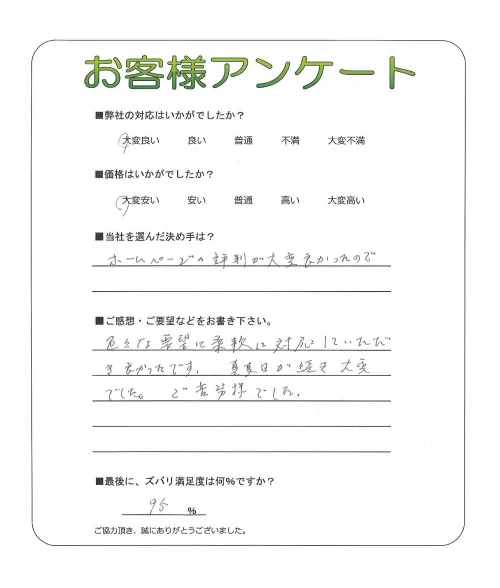 お客様アンケート
■弊社の対応はいかがでしたか？
大変良い 良い 普通 不満 大変不満
■価格はいかがでしたか？
大変安い 安い 普通 高い 大変高い
■当社を選んだ決め手は？
ホームページの評判が大変良かったので
■ご感想・ご要望などをお書き下さい。
色々な要望に柔軟に対応していただ
き良かったです。 真夏日が続き大変
でした。ご苦労様でした。
■最後に、ズバリ満足度は何%ですか？
95 %
ご協力頂き、誠にありがとうございました。